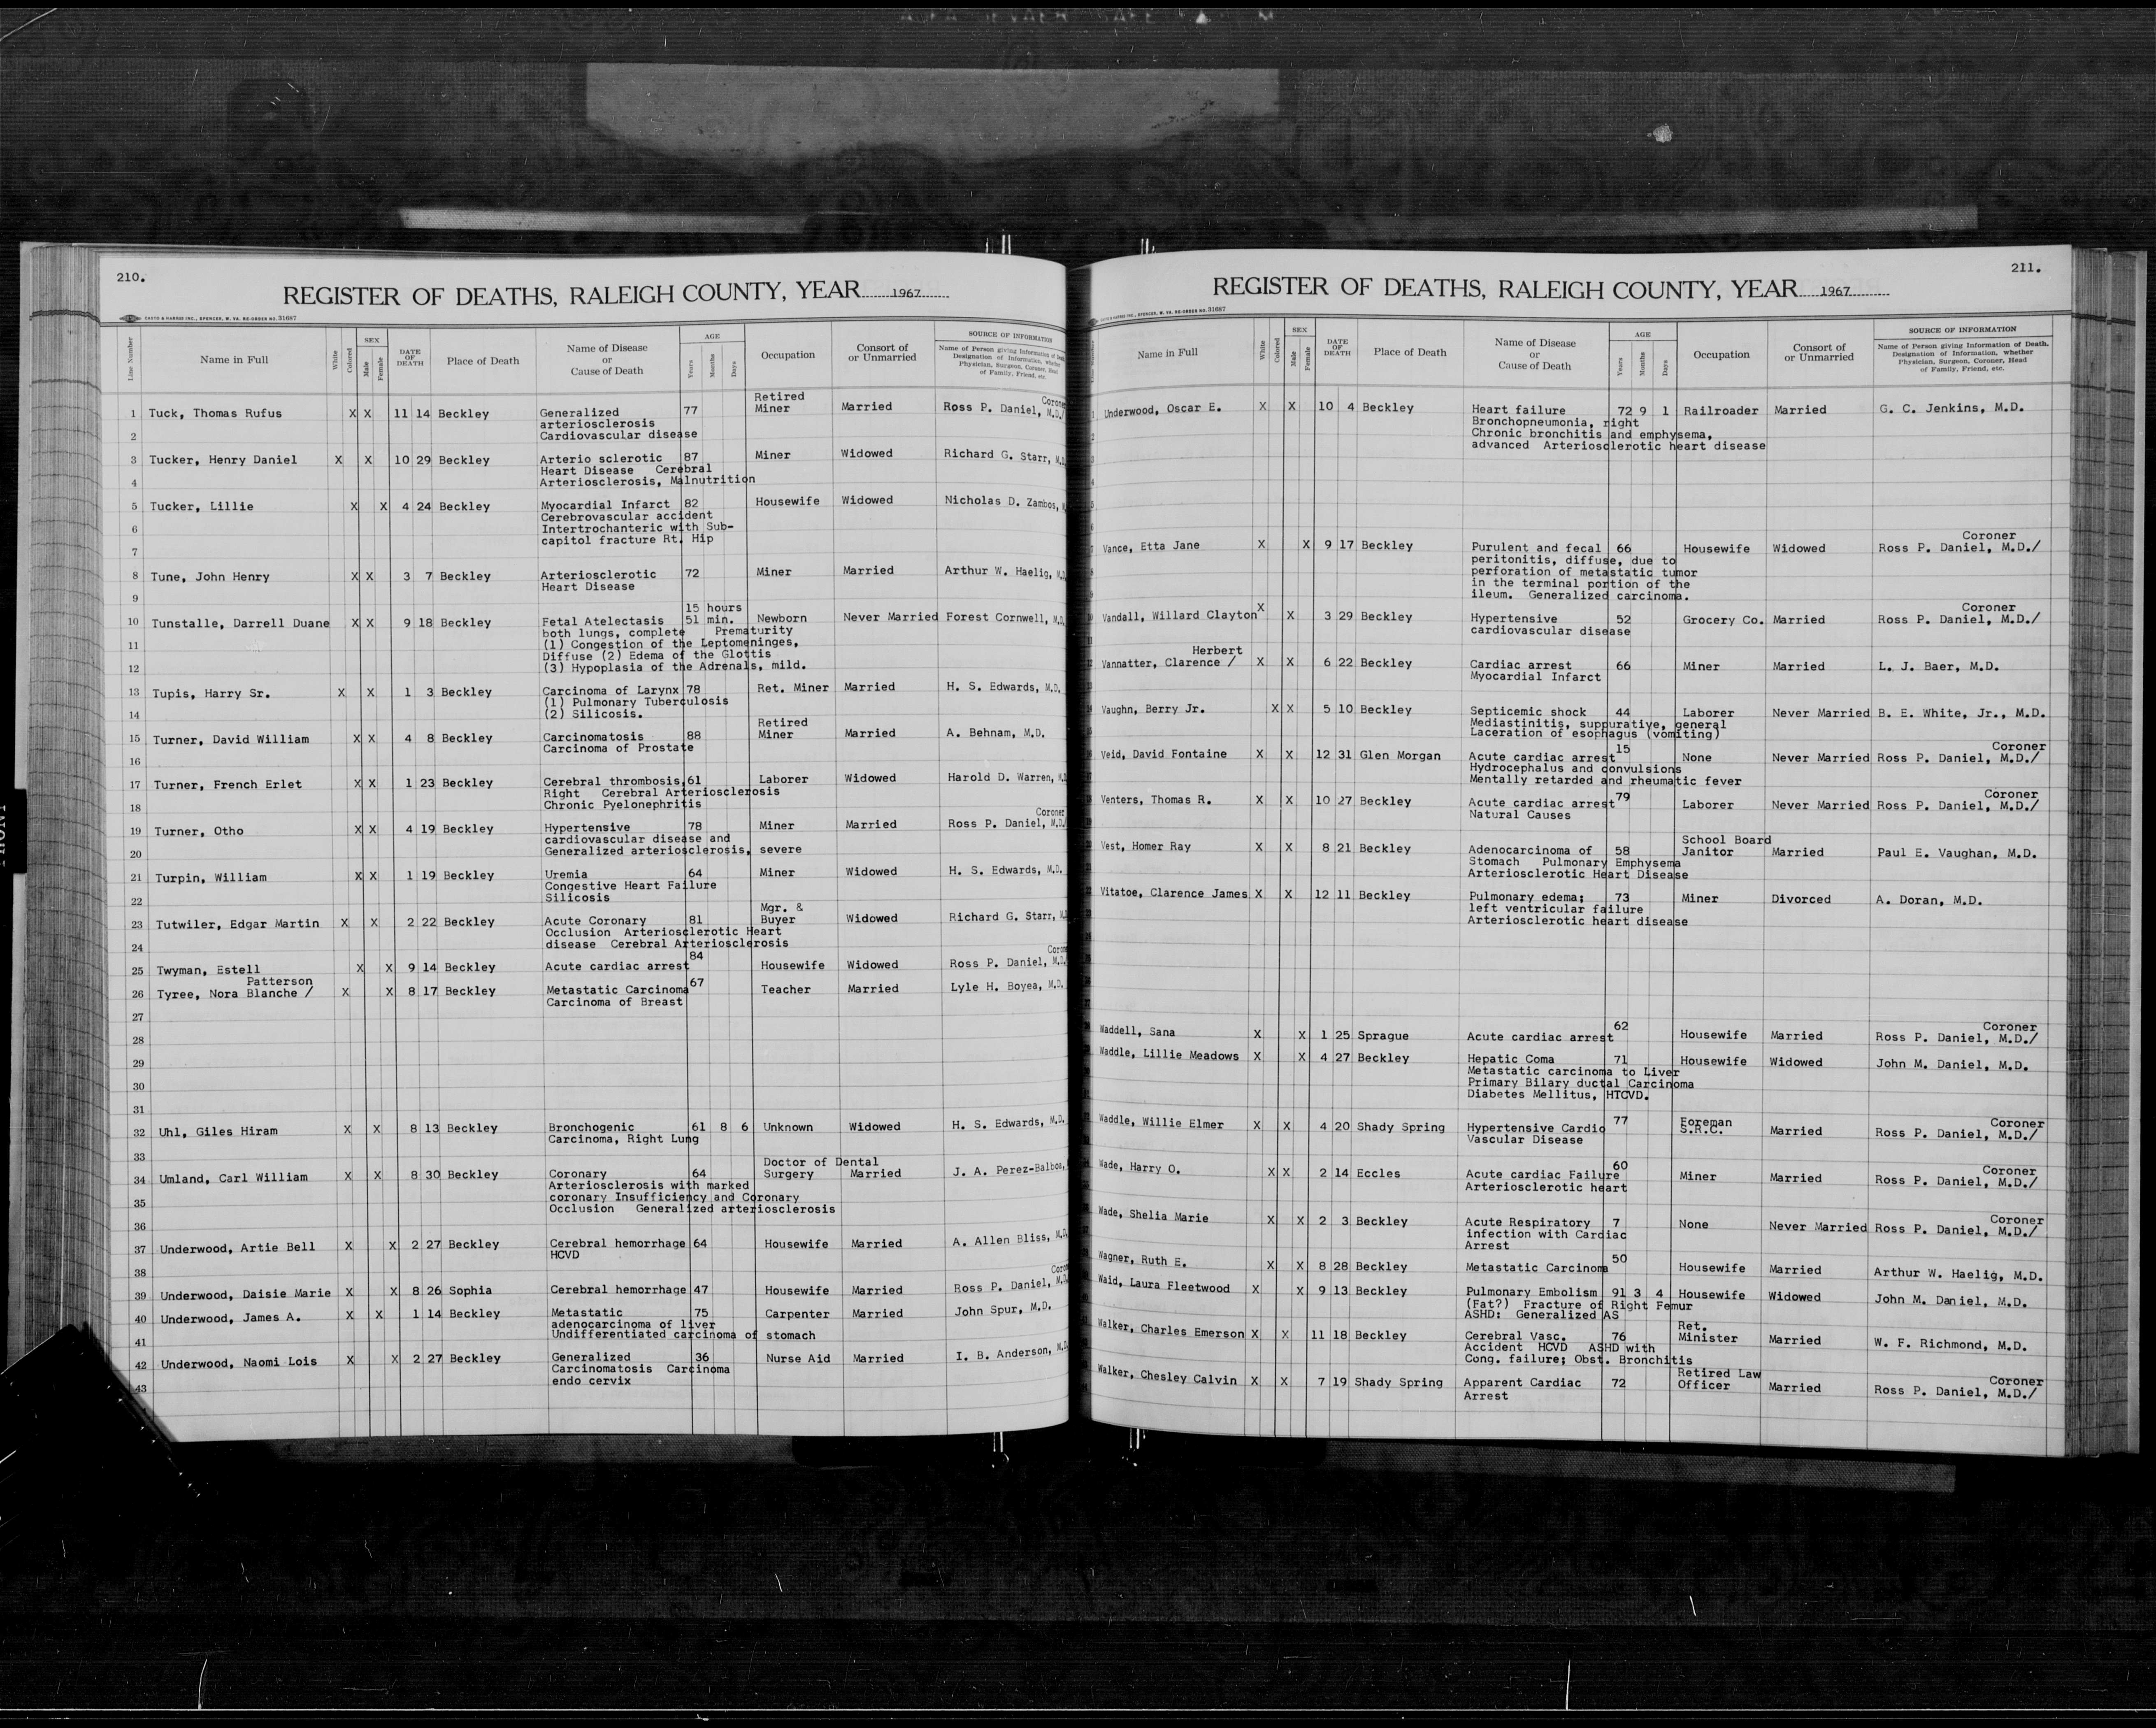 210.
REGISTER OF DEATHS, RALEIGH COUNTY, YEAR 1967
CASTO & HARRIS INC., SPENCER, W. VA. RE-ORDER NO. 31687
Line Number Name in Full White Colored SEX Male Female DATE OF DEATH Place of Death Name of Disease or Cause of Death AGE Years Months Days Occupation Consort of or Unmarried SOURCE OF INFORMATION
Name of Person giving Information of Death,
Designation of Information, whether
Physician, Surgeon, Coroner, Head
of Family, Friend, etc.
Retired Coroner
1 Tuck, Thomas Rufus X X 11 14 Beckley Generalized 77 Miner Married Ross P. Daniel, M.D./
arteriosclerosis
2 Cardiovascular disease
3 Tucker, Henry Daniel X X 10 29 Beckley Arterio sclerotic 87 Miner Widowed Richard G. Starr, M.D.
Heart Disease Cerebral
4 Arteriosclerosis, Malnutrition
5 Tucker, Lillie X X 4 24 Beckley Myocardial Infarct 82 Housewife Widowed Nicholas D. Zambos,
Cerebrovascular accident
6 Intertrochanteric with Sub-
capitol fracture Rt. Hip
7
8 Tune, John Henry X X 3 7 Beckley Arteriosclerotic 72 Miner Married Arthur W. Haelig, M.D.
Heart Disease
9
15 hours
10 Tunstalle, Darrell Duane X X 9 18 Beckley Fetal Atelectasis 51 min. Newborn Never Married Forest Cornwell, M.D.
both lungs, complete Prematurity
11 (1) Congestion of the Leptomeninges,
Diffuse (2) Edema of the Glottis
12 (3) Hypoplasia of the Adrenals, mild.
13 Tupis, Harry Sr. X X 1 3 Beckley Carcinoma of Larynx 78 Ret. Miner Married H. S. Edwards, M.D.
(1) Pulmonary Tuberculosis
14 (2) Silicosis.
Retired
15 Turner, David William X X 4 8 Beckley Carcinomatosis 88 Miner Married A. Behnam, M.D.
Carcinoma of Prostate
16
17 Turner, French Erlet X X 1 23 Beckley Cerebral thrombosis, 61 Laborer Widowed Harold D. Warren, M.D.
Right Cerebral Arteriosclerosis
18 Chronic Pyelonephritis
Coroner
19 Turner, Otho X X 4 19 Beckley Hypertensive 78 Miner Married Ross P. Daniel, M.D./
cardiovascular disease and
20 Generalized arteriosclerosis, severe
21 Turpin, William X X 1 19 Beckley Uremia 64 Miner Widowed H. S. Edwards, M.D.
Congestive Heart Failure
22 Silicosis
Mgr. &
23 Tutwiler, Edgar Martin X X 2 22 Beckley Acute Coronary 81 Buyer Widowed Richard G. Starr, M.D.
Occlusion Arteriosclerotic Heart
24 disease Cerebral Arteriosclerosis
84
25 Twyman, Estell X X 9 14 Beckley Acute cardiac arrest Housewife Widowed Ross P. Daniel, M.D./
Patterson 67
26 Tyree, Nora Blanche / X X 8 17 Beckley Metastatic Carcinoma Teacher Married Lyle H. Boyea, M.D.
Carcinoma of Breast
27
28
29
30
31
32 Uhl, Giles Hiram X X 8 13 Beckley Bronchogenic 61 8 6 Unknown Widowed H. S. Edwards, M.D.
Carcinoma, Right Lung
33
Doctor of Dental
34 Umland, Carl William X X 8 30 Beckley Coronary 64 Surgery Married J. A. Perez-Balboa,
Arteriosclerosis with marked
35 coronary Insufficiency and Coronary
Occlusion Generalized arteriosclerosis
36
37 Underwood, Artie Bell X X 2 27 Beckley Cerebral hemorrhage 64 Housewife Married A. Allen Bliss, M.D.
HCVD
38
39 Underwood, Daisie Marie X X 8 26 Sophia Cerebral hemorrhage 47 Housewife Married Ross P. Daniel, M.D.
40 Underwood, James A. X X 1 14 Beckley Metastatic 75 Carpenter Married John Spur, M.D.
adenocarcinoma of liver
41 Undifferentiated carcinoma of stomach
42 Underwood, Naomi Lois X X 2 27 Beckley Generalized 36 Nurse Aid Married I. B. Anderson, M.D.
Carcinomatosis Carcinoma
endo cervix
43
211.
REGISTER OF DEATHS, RALEIGH COUNTY, YEAR 1967
CASTO & HARRIS INC., SPENCER, W. VA. RE-ORDER NO. 31687
Name in Full White Colored SEX Male Female DATE OF DEATH Place of Death Name of Disease or Cause of Death AGE Years Months Days Occupation Consort of or Unmarried SOURCE OF INFORMATION
Name of Person giving Information of Death,
Designation of Information, whether
Physician, Surgeon, Coroner, Head
of Family, Friend, etc.
Underwood, Oscar E. X X 10 4 Beckley Heart failure 72 9 1 Railroader Married G. C. Jenkins, M.D.
Bronchopneumonia, right
Chronic bronchitis and emphysema,
advanced Arteriosclerotic heart disease
Coroner
Vance, Etta Jane X X 9 17 Beckley Purulent and fecal 66 Housewife Widowed Ross P. Daniel, M.D./
peritonitis, diffuse, due to
perforation of metastatic tumor
in the terminal portion of the
ileum. Generalized carcinoma.
Coroner
Vandall, Willard Clayton X X 3 29 Beckley Hypertensive 52 Grocery Co. Married Ross P. Daniel, M.D./
cardiovascular disease
Herbert
Vannatter, Clarence / X X 6 22 Beckley Cardiac arrest 66 Miner Married L. J. Baer, M.D.
Myocardial Infarct
Vaughn, Berry Jr. X X 5 10 Beckley Septicemic shock 44 Laborer Never Married B. E. White, Jr., M.D.
Mediastinitis, suppurative, general
Laceration of esophagus (vomiting)
15 Coroner
Veid, David Fontaine X X 12 31 Glen Morgan Acute cardiac arrest None Never Married Ross P. Daniel, M.D./
Hydrocephalus and convulsions
Mentally retarded and rheumatic fever
79 Coroner
Venters, Thomas R. X X 10 27 Beckley Acute cardiac arrest Laborer Never Married Ross P. Daniel, M.D./
Natural Causes
School Board
Vest, Homer Ray X X 8 21 Beckley Adenocarcinoma of 58 Janitor Married Paul E. Vaughan, M.D.
Stomach Pulmonary Emphysema
Arteriosclerotic Heart Disease
Vitatoe, Clarence James X X 12 11 Beckley Pulmonary edema; 73 Miner Divorced A. Doran, M.D.
left ventricular failure
Arteriosclerotic heart disease
62 Coroner
Waddell, Sana X X 1 25 Sprague Acute cardiac arrest Housewife Married Ross P. Daniel, M.D./
Waddle, Lillie Meadows X X 4 27 Beckley Hepatic Coma 71 Housewife Widowed John M. Daniel, M.D.
Metastatic carcinoma to Liver
Primary Bilary ductal Carcinoma
Diabetes Mellitus, HTCVD.
77 Foreman Coroner
Waddle, Willie Elmer X X 4 20 Shady Spring Hypertensive Cardio S.R.C. Married Ross P. Daniel, M.D./
Vascular Disease
60 Coroner
Wade, Harry O. X X 2 14 Eccles Acute cardiac Failure Miner Married Ross P. Daniel, M.D./
Arteriosclerotic heart
Coroner
Wade, Shelia Marie X X 2 3 Beckley Acute Respiratory 7 None Never Married Ross P. Daniel, M.D./
infection with Cardiac
Arrest
50
Wagner, Ruth E. X X 8 28 Beckley Metastatic Carcinoma Housewife Married Arthur W. Haelig, M.D.
Waid, Laura Fleetwood X X 9 13 Beckley Pulmonary Embolism 91 3 4 Housewife Widowed John M. Daniel, M.D.
(Fat?) Fracture of Right Femur
ASHD: Generalized AS
Ret.
Walker, Charles Emerson X X 11 18 Beckley Cerebral Vasc. 76 Minister Married W. F. Richmond, M.D.
Accident HCVD ASHD with
Cong. failure; Obst. Bronchitis
Retired Law Coroner
Walker, Chesley Calvin X X 7 19 Shady Spring Apparent Cardiac 72 Officer Married Ross P. Daniel, M.D./
Arrest